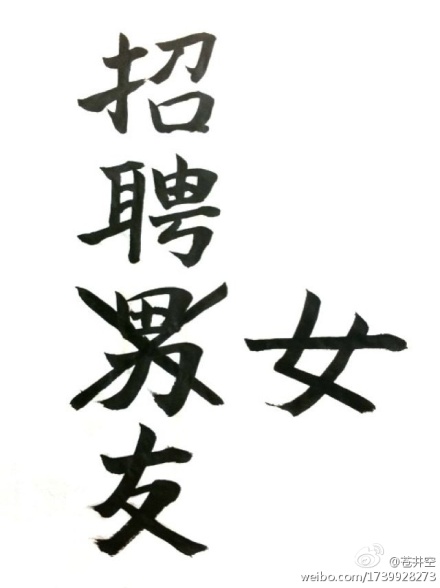 招聘男友
女
@苍井空
weibo.com/1739928273